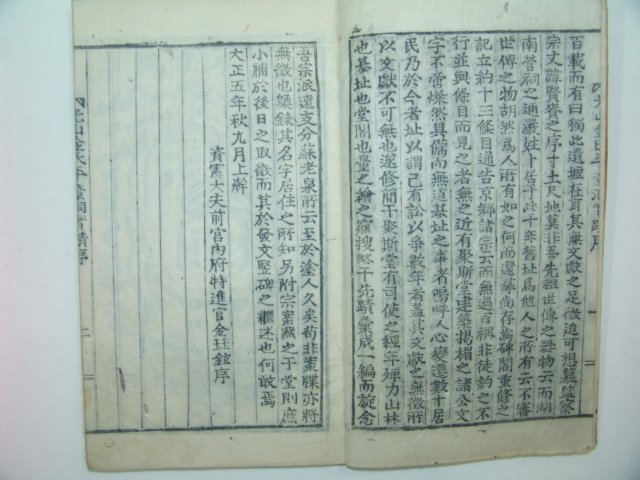 百載而有曰獨此遺墟在耳其無文獻之足徵追可想
宗丈諱賢賚之序寸土尺地莫非吾先祖世傳之器物云而湖
南營祠之通嚴姓卜居乎此千年舊址爲他人之所有云不審
世傳之物胡然爲人所有如之何而還醉尚存嵩碑閣重修之
記立約十三條目通告京鄉諸宗云而無過百禩非徒約之不
行並與條目而見之者無之近有聚斯堂建築揭楣之諸公文
字不啻燦然具備尚無道基址之事者嗚呼人心變遷數十居
民乃於今者址以謂己有訟以爭數年者盖其文獻之無徵所
以文獻不可無也遂修簡于聚斯堂有司使之經年殫力山林
也基址也堂閣也量之繪之兼搜略干先蹟彙成一編而旋念
吾宗派遠支分蘇老泉所云至於塗人久矣苟非案牒亦將
無徵也槩錄其名字居住之所知另附宗案藏之于堂則庶
小補於後日之取徵而其於發文竪碑之繼述也何敢焉
大正五年秋九月上澣
資憲大夫前宮內府特進官金珏鉉序